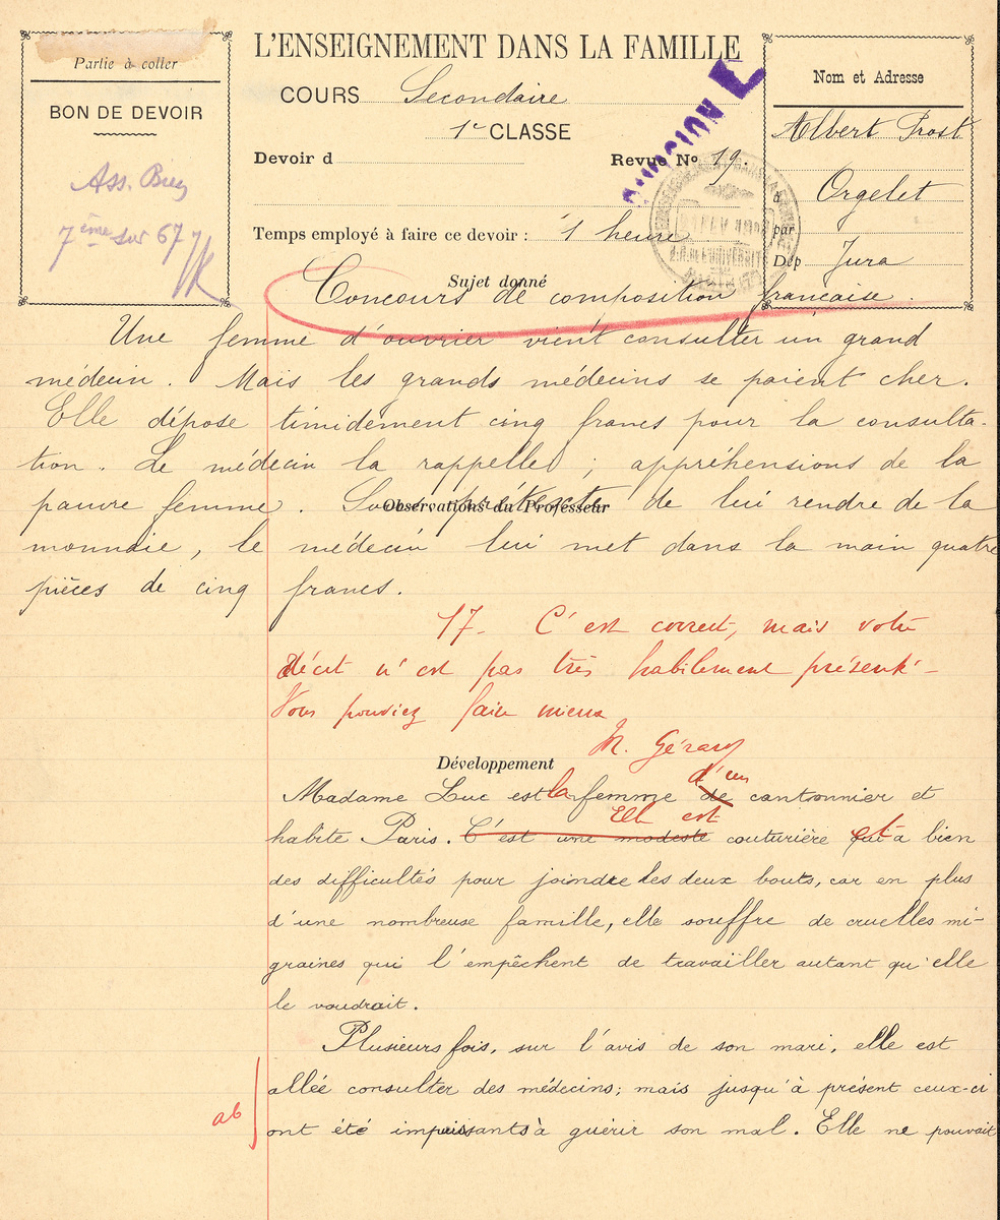 Partie à coller
BON DE DEVOIR
Ass. Bien
7ème sur 67
L'ENSEIGNEMENT DANS LA FAMILLE
COURS Secondaire
1e CLASSE
Devoir d
Revue No 19.
Temps employé à faire ce devoir : 1 heure
Nom et Adresse
Albert Prost
à Orgelet
par
Dép Jura
Sujet donné
Concours de composition française.
Une femme d'ouvrier vient consulter un grand
médecin. Mais les grands médecins se paient cher.
Elle dépose timidement cinq francs pour la consulta-
tion. Le médecin la rappelle ; appréhensions de la
pauvre femme. Sous prétexte de lui rendre de la
Observations du Professeur
monnaie, le médecin lui met dans la main quatre
pièces de cinq francs.
17. C'est correct, mais votre
récit n'est pas très habilement présenté.
Vous pouviez faire mieux
M. Gérard
Développement
d'un
Madame Luc est la femme de cantonnier et
Elle est
habite Paris. C'est une modeste couturière et a bien
des difficultés pour joindre les deux bouts, car en plus
d'une nombreuse famille, elle souffre de cruelles mi-
graines qui l'empêchent de travailler autant qu'elle
le voudrait.
Plusieurs fois, sur l'avis de son mari, elle est
allée consulter des médecins; mais jusqu'à présent ceux-ci
ab
ont été impuissants à guérir son mal. Elle ne pouvait